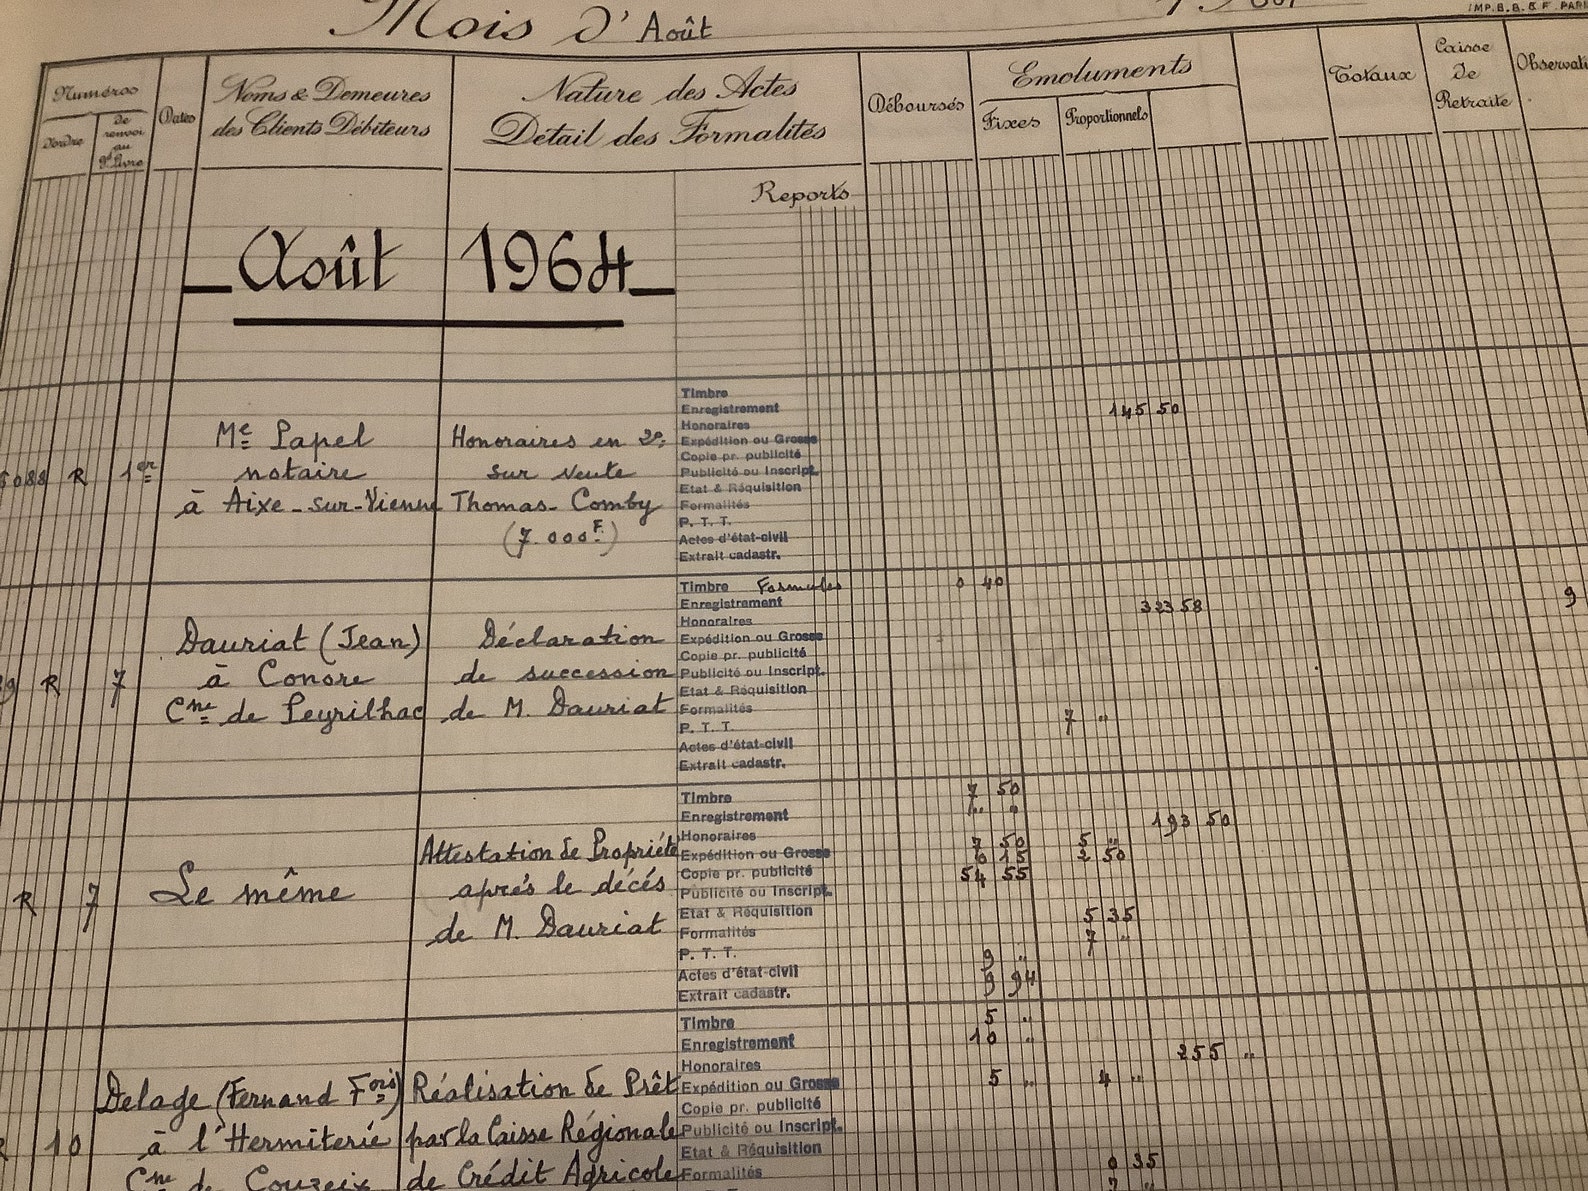 Mois d'Août
IMP. B. B. & F. PARI
Numéros
Dordre
de renvoi au Gd Livre
Dates
Noms & Demeures
des Clients Débiteurs
Nature des Actes
Détail des Formalités
Déboursés
Emoluments
Fixes
Proportionnels
Totaux
Caisse
De
Retraite
Observati
Reports
Août 1964
Timbre
Enregistrement 145 50
Honoraires
Expédition ou Grosse
Copie pr. publicité
Publicité ou Inscript.
Etat & Réquisition
Formalités
P. T. T.
Actes d'état-civil
Extrait cadastr.
Me Papel
notaire
à Aixe-sur-Vienne
Honoraires en 2e
sur vente
Thomas-Comby
(7.000F)
088 R 1er
Timbre Formules 0 40
Enregistrement 323 58
Honoraires
Expédition ou Grosse
Copie pr. publicité
Publicité ou Inscript.
Etat & Réquisition
Formalités 7 "
P. T. T.
Actes d'état-civil
Extrait cadastr.
9
Dauriat (Jean)
à Conore
Cne de Peyrilhac
Déclaration
de succession
de M. Dauriat
9 R 7
Timbre 7 50
Enregistrement " "
193 50
Honoraires 7 50 5 "
Expédition ou Grosse 0 15 2 50
Copie pr. publicité 54 55
Publicité ou Inscript.
Etat & Réquisition 5 35
Formalités 7 "
P. T. T. 9 "
Actes d'état-civil 9 94
Extrait cadastr.
R 7
Le même
Attestation de Propriété
après le décés
de M. Dauriat
Timbre 5 "
Enregistrement 10 "
Honoraires 255 "
Expédition ou Grosse 5 " 4 "
Copie pr. publicité
Publicité ou Inscript.
Etat & Réquisition
Formalités 0 35
7 "
Delage (Fernand Fois)
à l'Hermiterie
Cne de Couzeix
Réalisation de Prêt
par la Caisse Régionale
de Crédit Agricole
10